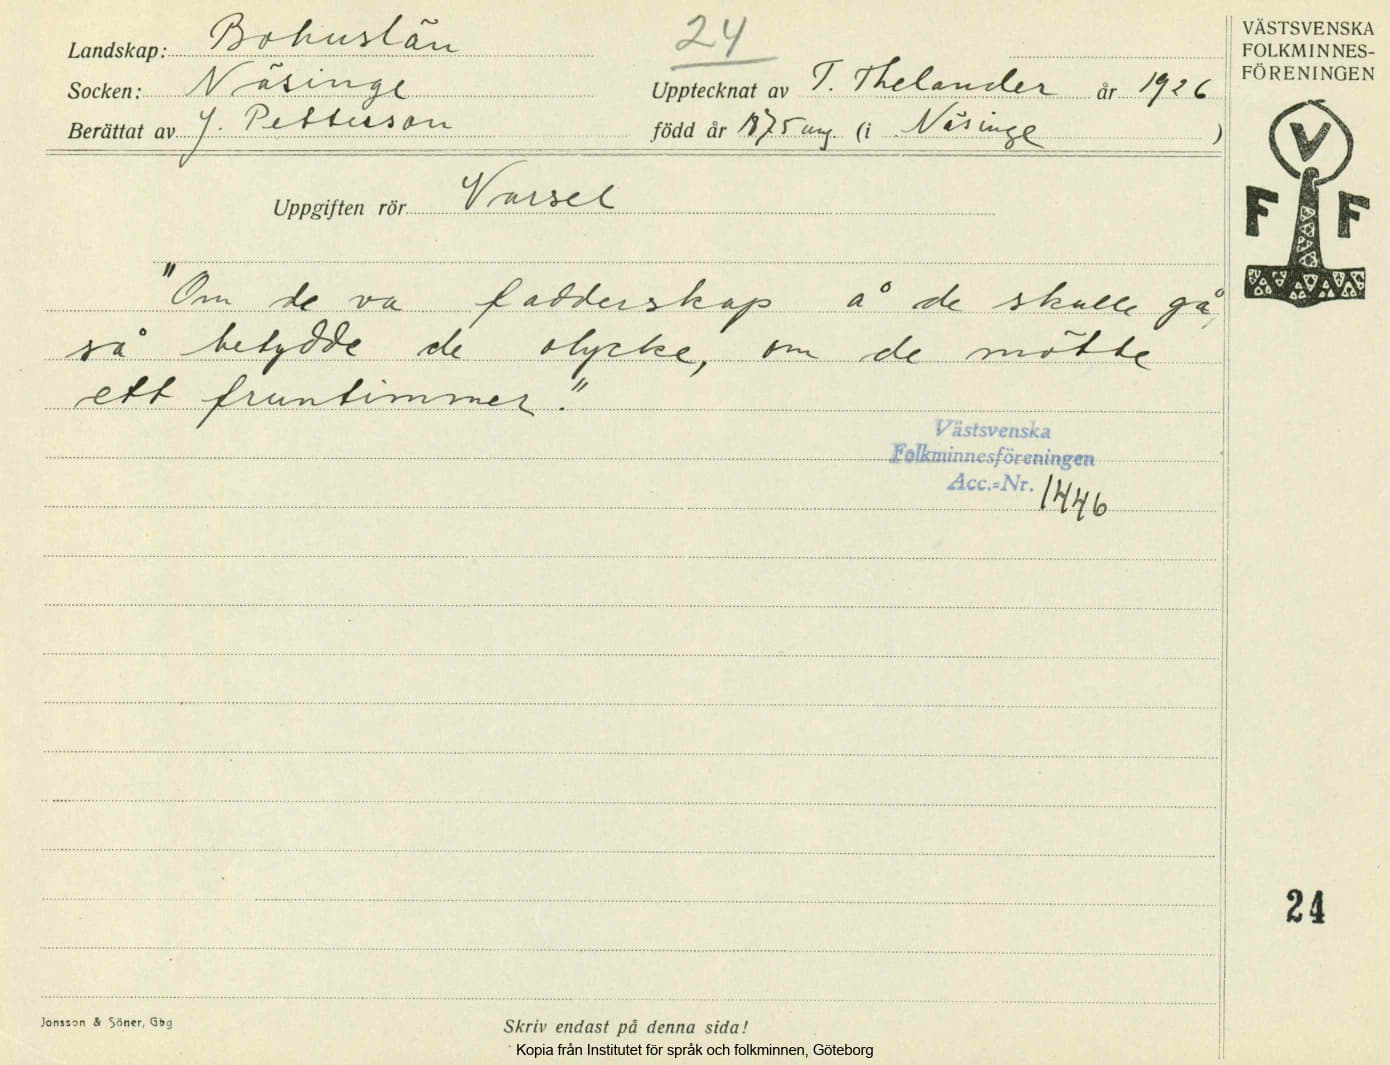 Landskap: Bohuslän
24
VÄSTSVENSKA
FOLKMINNES-
FÖRENINGEN
Socken: Näsinge
Upptecknat av T. Thelander år 1926
Berättat av J. Pettersson
född år 1875 ung. (i Näsinge )
V
F F
Uppgiften rör Varsel
"Om de va fadderskap å de skulle gå,
så betydde de olycke, om de mötte
ett fruntimmer."
Västsvenska
Folkminnesföreningen
Acc.=Nr. 1446
24
Jonsson & Söner, Gbg
Skriv endast på denna sida!
Kopia från Institutet för språk och folkminnen, Göteborg